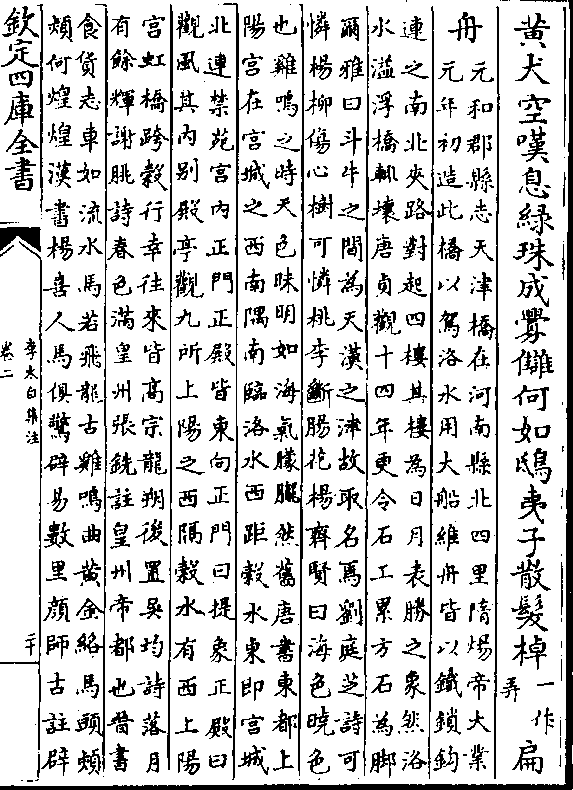 黄犬空嘆息綠珠成釁讎何如鴟夷子散髮棹一作弄扁
舟
元和郡縣志天津橋在河南縣北四里隋煬帝大業
元年初造此橋以駕洛水用大船維舟皆以鐵鎖鈎
連之南北夾路對起四樓其樓為日月表勝之象然洛
水溢浮橋輒壞唐貞觀十四年更令石工累方石為脚
爾雅曰斗牛之間為天漢之津故取名焉劉庭芝詩可
憐楊柳傷心樹可憐桃李斷腸花楊齊賢曰海色曉色
也雞鳴之時天色昧明如海氣朦朧然舊唐書東都上
陽宮在宮城之西南隅南臨洛水西距穀水東即宮城
北連禁苑宮内正門正殿皆東向正門曰提象正殿曰
觀風其内别殿亭觀九所上陽之西隔穀水有西上陽
宮虹橋跨穀行幸往來皆高宗龍朔後置吳均詩落月
有餘輝謝朓詩春色滿皇州張銑註皇州帝都也昔書
食貨志車如流水馬若飛龍古雞鳴曲黄金絡馬頭熲
熲何煌煌漢書楊喜人馬俱驚辟易數里顔師古註辟
欽定四庫全書
李太白集注
卷二
二十